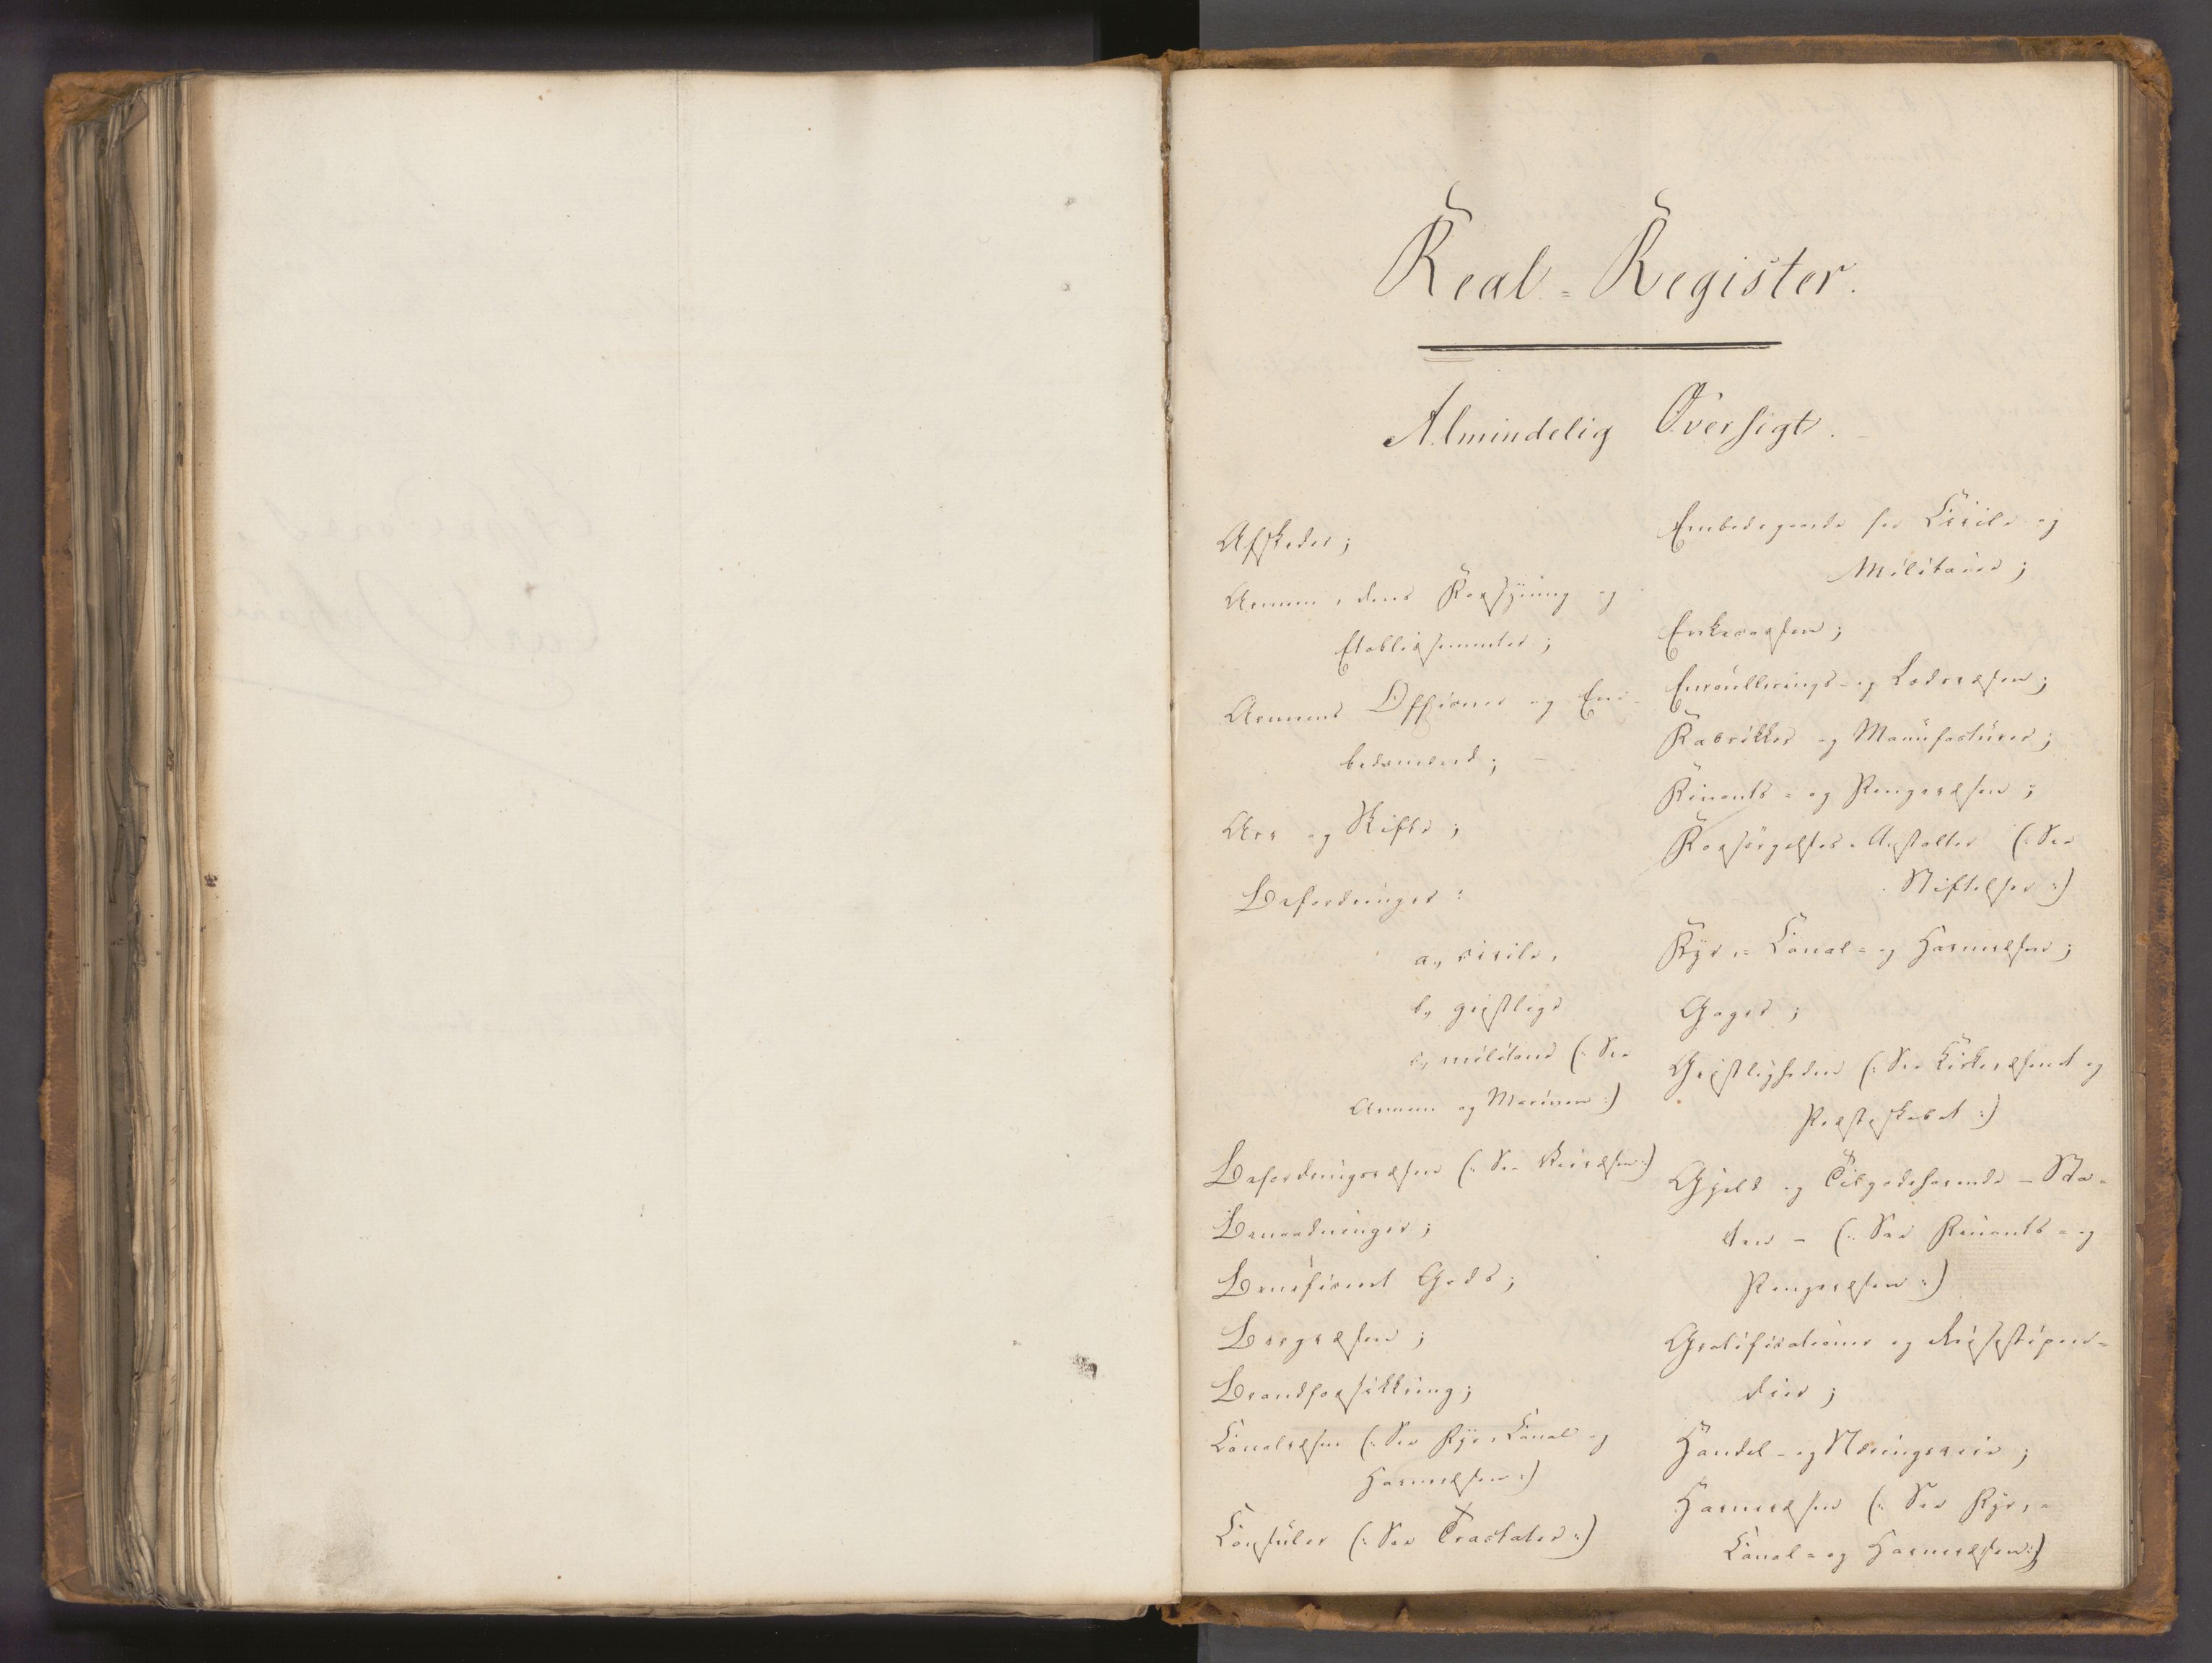 Real-Register.
Almindelig Oversigt.
Afskeder;
Armeen, dens Forsÿning og
Etablissementer;
Armeens Officerer og Em-
bedsmænd;
Arv og Skifte;
Befordringer:
a., civile,
b., geistlige
c., militaire (: See
Armeen og Marinen :)
Befordringsvæsen (: See Veivæsen :)
Benaadninger;
Beneficeret Gods;
Bergvæsen;
Brandforsikkring;
Canalvæsen (: See Fÿr, Canal og
Havnevæsen :)
Consuler (: See Tractater :)
Embedsgaarde for Civile og
Militaire;
Enkecassen;
Enroullerings- og Lodsvæsen;
Fabrikker og Manufacturer;
Finants- og Pengevæsen;
Forsørgelses-Anstalter (: See
Stiftelser :)
Fÿr,- Canal- og Havnevæsen;
Gager;
Geistligheden (: See Kirkevæsenet og
Præsteskabet :)
Gjeld og Tilgodehavende - Sta-
tens - (: See Finants- og
Pengevæsen :)
Gratificationer og Reisestipen-
dier;
Handel- og Næringsveie;
Havnevæsen (: See Fÿr,-
Canal- og Havnevæsen :)